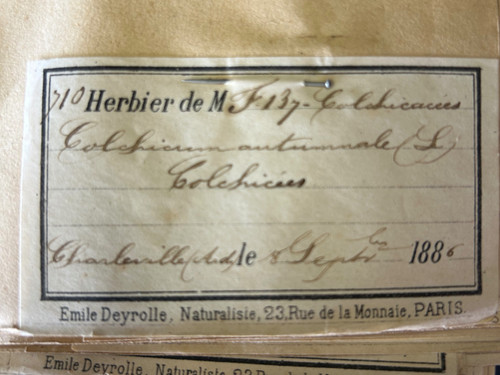 710 Herbier de M F. 137 - Colchicacées
Colchicum autumnale (L)
Colchicées
Charleville (Ard) le 8 Septbre 1886
Emile Deyrolle, Naturalisie, 23, Rue de la Monnaie, PARIS.
Emile Deyrolle, Naturalisie, 23 Rue de la